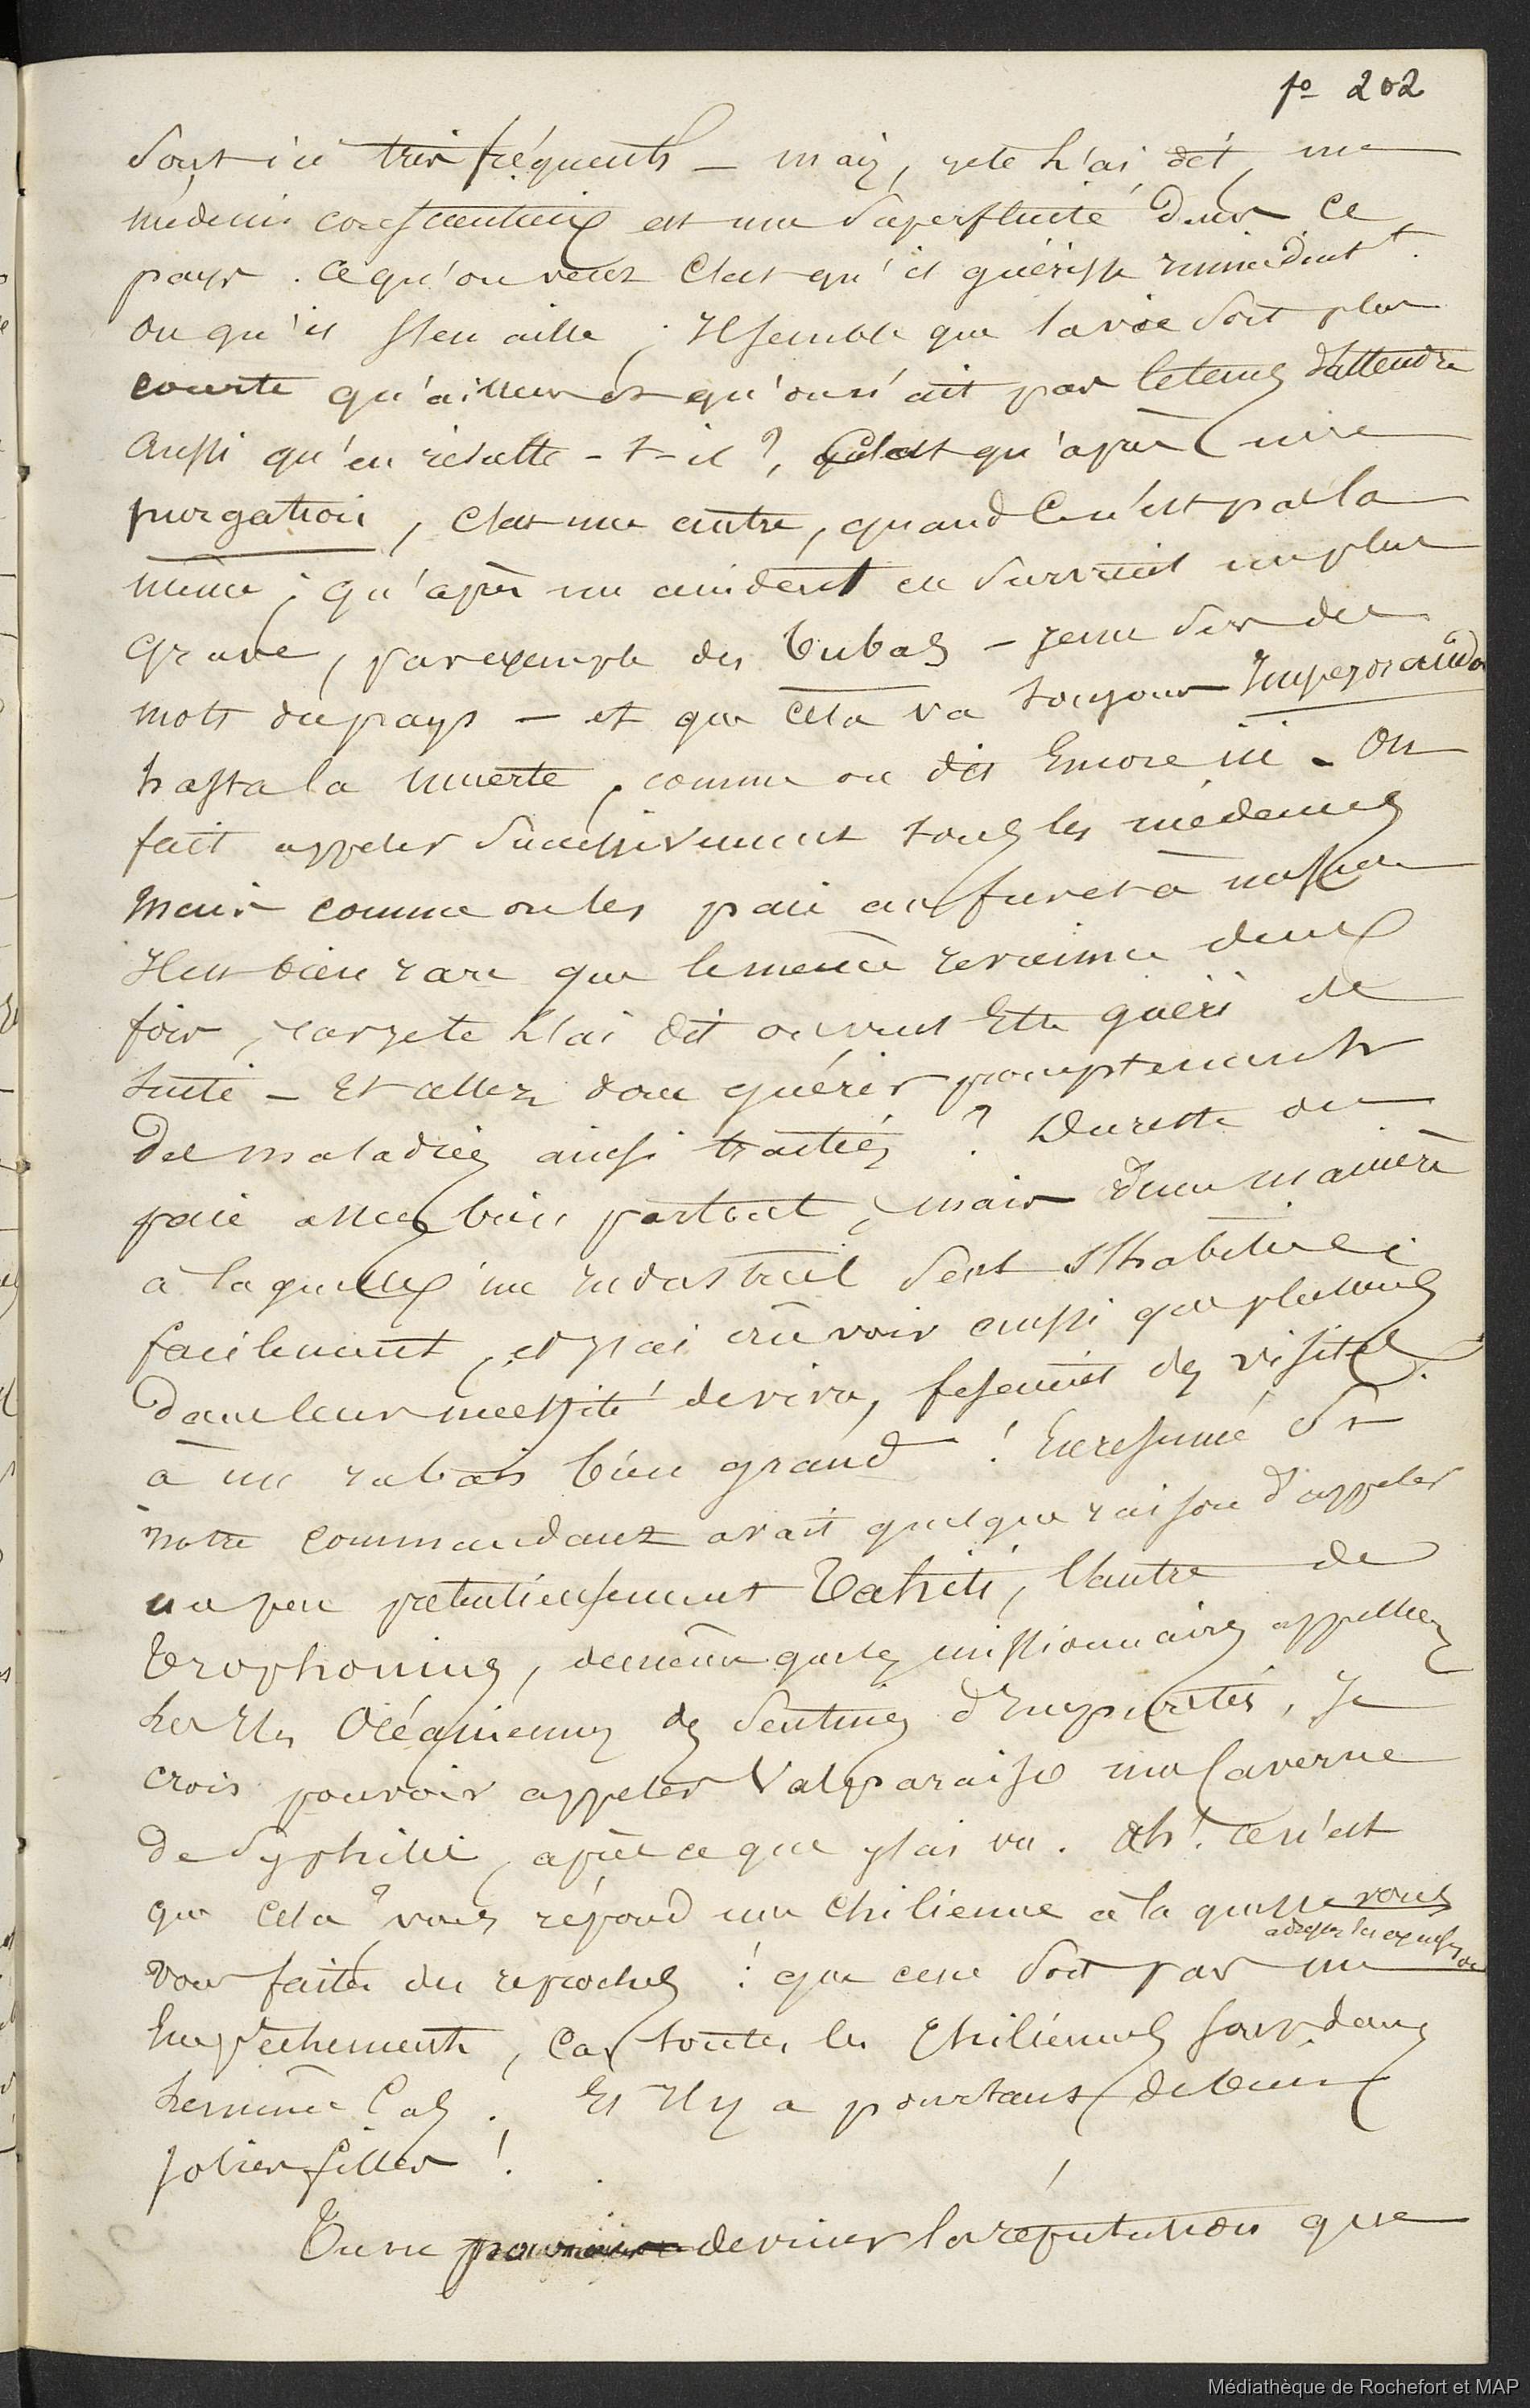 fo 202
sont ici très fréquents — mais, je te l'ai dit, un
médecin consciencieux est une superfluité dans ce
pays. Ce qu'on veut c'est qu'il guérisse immédiatt.
ou qu'il s'en aille ; Il semble que la vie soit plus
courte qu'ailleurs et qu'on n'ait pas le tems d'attendre
Aussi qu'en résulte-t-il ?, c'est qu'après une
purgation, c'est une autre, quand ce n'est pas la
même ; qu'après un accident en survient un plus
grave, par exemple des bubas — je me sers des
mots du pays — et que cela va toujours Imperorando
hasta la muerte, comme on dit Encore ici. On
fait appeler successivement tous les médecins
Mais comme on les paie au fur et à mesure
Il est bien rare que le même revienne deux
fois, car je te l'ai dit on veut Etre guéri de
suite — Et allez donc guérir promptement
des maladies ainsi traitées ? Du reste on
paie assez bien partout, mais d'une manière
à laquelle un industriel seul s'habitue
facilement, et j'ai crû voir aussi que plusieurs
dans leur nécessité de vivre, fesaient des visites
à un rabais bien grand ! En résumé si
notre commandant avait quelque raison d'appeler
un peu prétentieusement Tahiti, l'antre de
Trophonius, de même que les missionnaires appellent
les Iles Océaniennes des sentines d'Impuretés, Je
crois pouvoir appeler Valparaiso une Caverne
de Syphilis, après ce que j'ai vu. Ah ! ce n'est
que cela ? vous répond une Chilienne à la quelle vous
adressez les
vous faites des reproches ! que ce ne soit pas un
Empêchement, car toutes les Chiliennes sont dans
le même Cas. Et Il y a pourtant de bien
jolies filles !
Tu ne deviner la réputation que